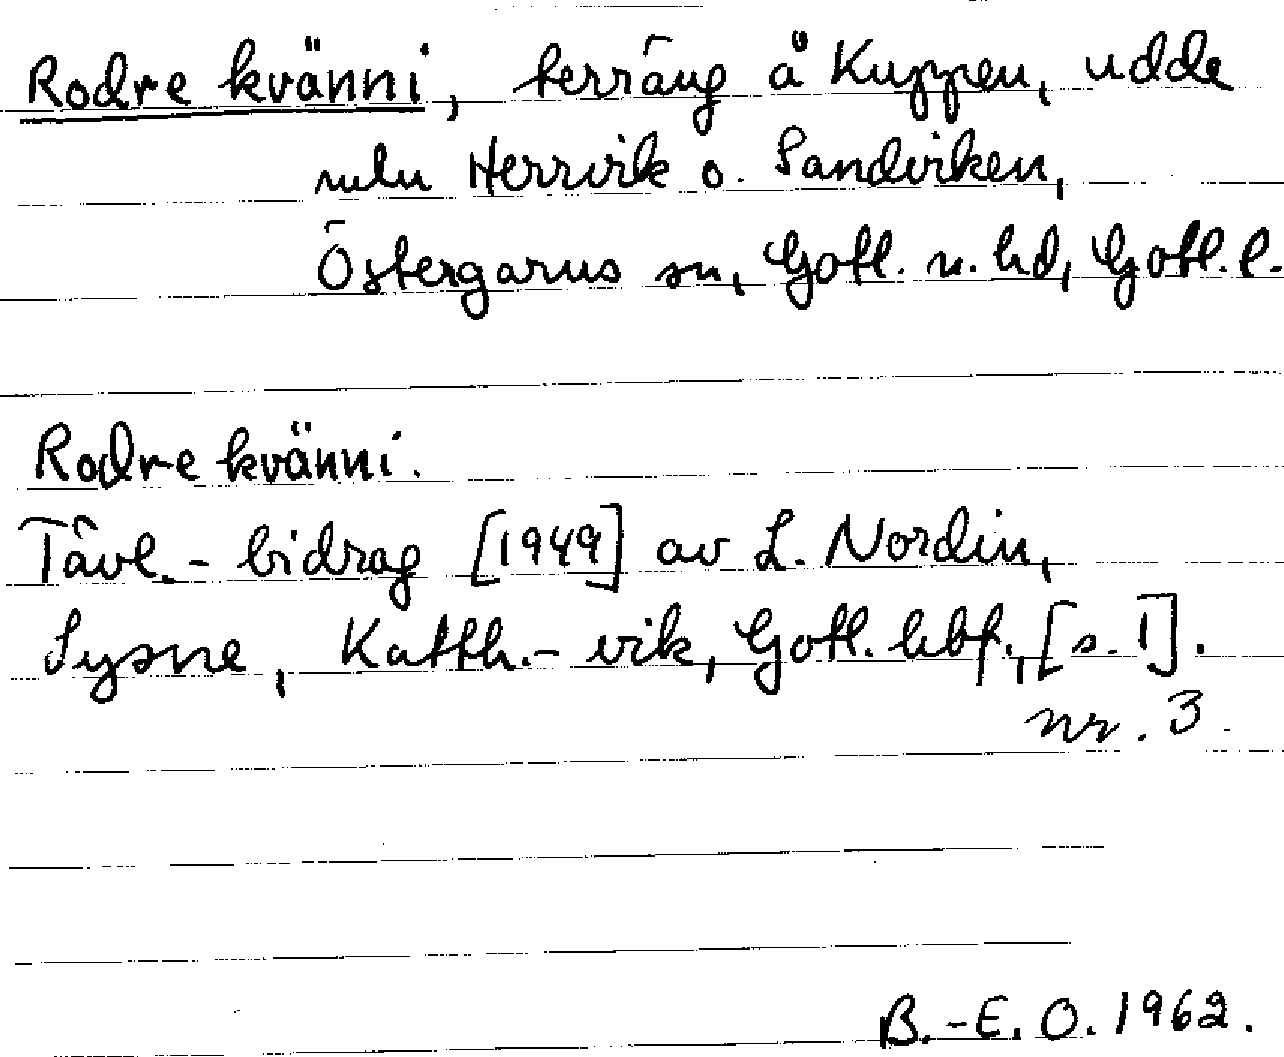 Rodre kvänni, terräng å Kuppen, udde
mln Herrvik o. Sandviken,
Östergarns sn, Gotl. n. hd, Gotl. l.
Rodre kvänni.
Tävl.- bidrag [1949] av L. Nordin,
Sysne, Katth.- vik, Gotl. hbf., [s. 1].
nr. 3.
B.-E. O. 1962.